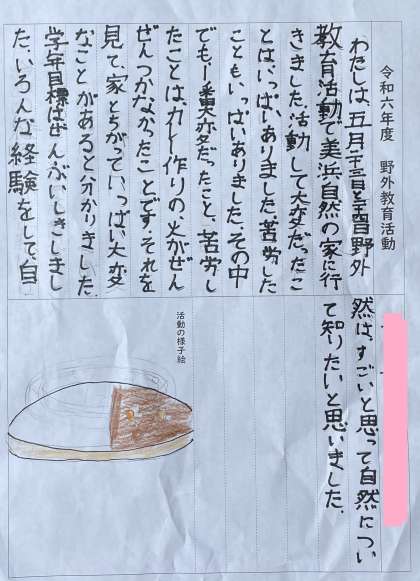 令和六年度 野外教育活動
わたしは、五月二十二日と二十三日野外
教育活動で美浜自然の家に行
きました。活動して大変だったこ
とはいっぱいありました。苦労した
こともいっぱいありました。その中
でも一番大変だったこと、苦労し
たことは、カレー作りの、火がぜん
ぜんつかなかったことです。それを
見て、家とちがっていっぱい大変
なことがあると分かりました。
学年目標はぜんぶいしきしまし
た。いろんな経験をして、自
然は、すごいと思って自然につい
て知りたいと思いました。
活動の様子絵